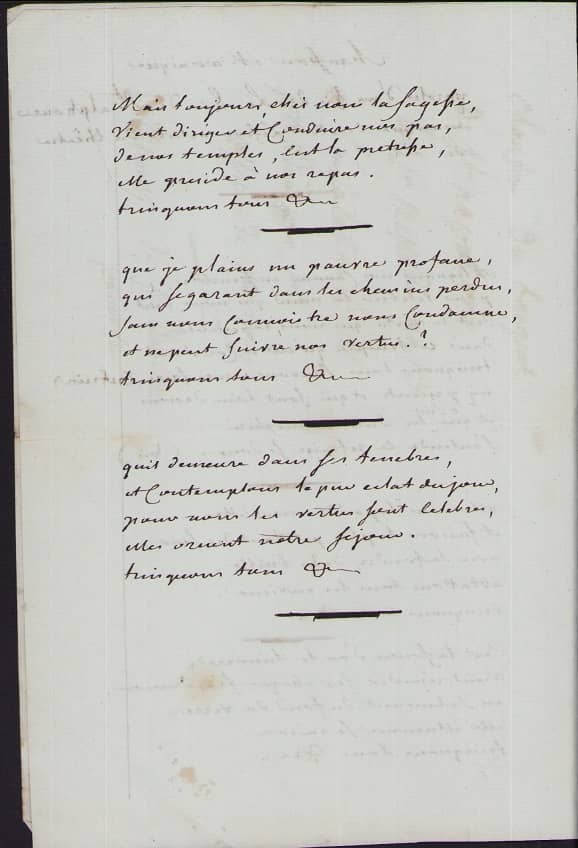 Mais toujours, chez nous la sagesse,
vient diriger et Conduire nos pas,
de nos temples, c'est la pretresse,
elle preside à nos repas.
trinquons tous &
que je plains un pauvre profane,
qui segarant dans les chemins perdus,
sans nous Connoitre nous Condamne,
et ne peut suivre nos vertus.?
trinquons tous &
quil demeure dans ses tenebres,
et Contemplons le pur eclat du jour,
pour nous les vertus sont celebres,
elles ornent notre sejour.
trinquons tous &